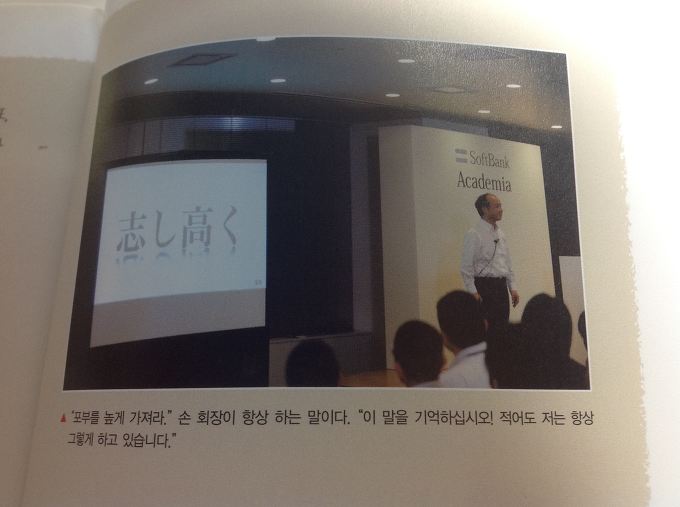 志し高く
SoftBank
Academia
▲ “포부를 높게 가져라.” 손 회장이 항상 하는 말이다. “이 말을 기억하십시오! 적어도 저는 항상
그렇게 하고 있습니다.”